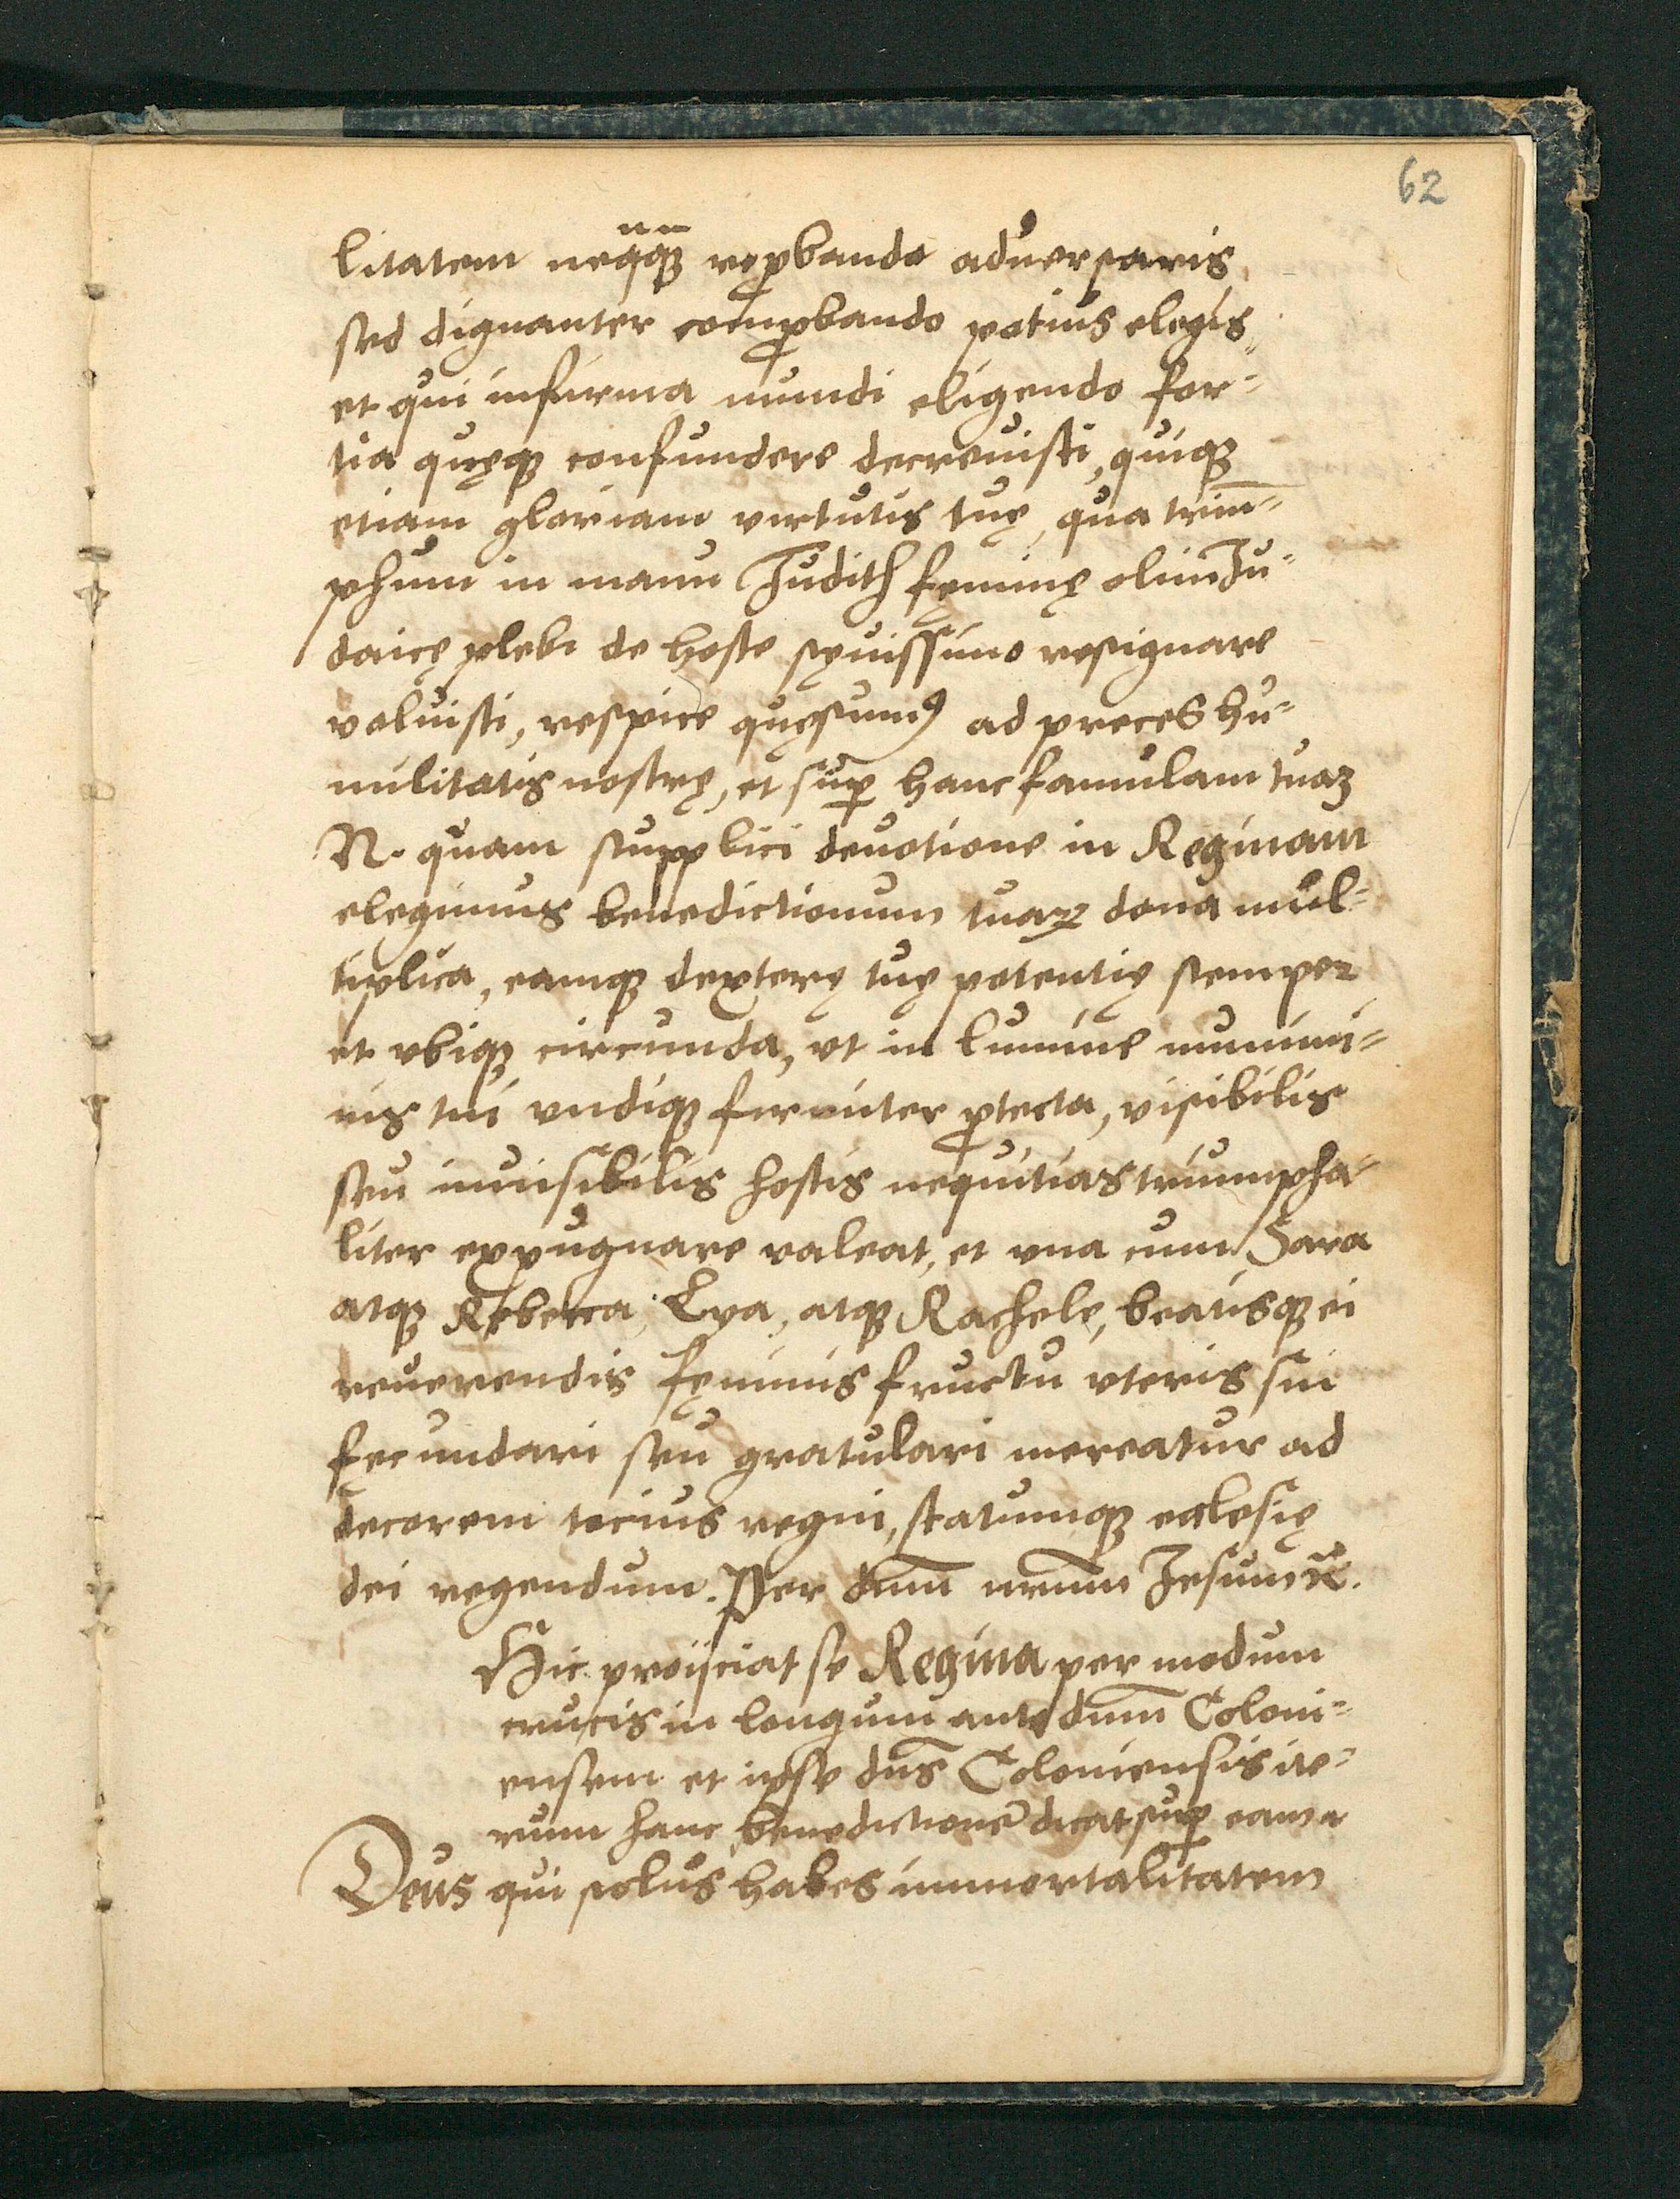 62
litatem neqqꝫ rep̱bando aduersaris,
sed dignanter comꝓbando potius elegis,
et qui infirma mundi eligendo for-
tia quęqꝫ confundere decreuisti, quiqꝫ
etiam gloriam virtutis tuę, qua trium-
phum in manu Judith fęminę olim Ju-
daicę plebi de hoste sęuissimo resignare
voluisti, respice quęsumꝰ ad preces hu-
militatis nostrę, et suꝑ hanc famulam tuaꝫ
N. quam supplici deuotione in Reginam
elegimus benedictionum tuaꝝ dona mul-
tiplica, eamqꝫ dexterę tuę potentię semper
et vbiqꝫ circunda, vt in lumine munimi-
nis tui vndiqꝫ firmiter ꝓtecta, visibilis
seu inuisibilis hostis nequitias triumpha-
liter expugnare valeat, et vna cum Sara
atqꝫ Rebecca, Lya, atqꝫ Rachele, beatisqꝫ ei
reuerendis fęminis fructu vteris sui
fęcundari seu gratulari mereatur ad
decorem tocius regni, statumqꝫ ecclesię
dei regendum. Per dnm̄ nrm̄ Jesum ꝛc.
Hic proijciat se Regina per modum
crucis in longum ante dnm̄ Coloni-
ensem et ipse dns̄ Coloniensis ite-
rum hanc benedictionē dicat suꝑ eam
Deus qui solus habes immortalitatem